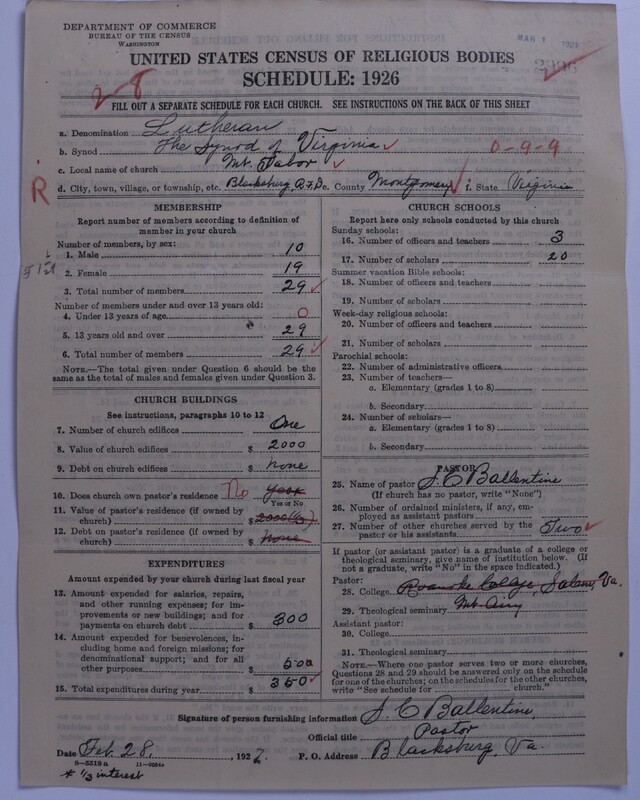 DEPARTMENT OF COMMERCE
BUREAU OF THE CENSUS
WASHINGTON
MAR 1
UNITED STATES CENSUS OF RELIGIOUS BODIES
SCHEDULE: 1926
28
FILL OUT A SEPARATE SCHEDULE FOR EACH CHURCH. SEE INSTRUCTIONS ON THE BACK OF THIS SHEET
a. Denomination Lutheran
b. Synod The Synod of Virginia
0-9-9
c. Local name of church Mt. Tabor
d. City, town, village, or township, etc. Blacksburg, R.F.D. e. County Montgomery f. State Virginia
R
MEMBERSHIP
Report number of members according to definition of
member in your church
Number of members, by sex:
1. Male 10
2. Female 19
3. Total number of members 29
Number of members under and over 13 years old:
4. Under 13 years of age 0
5. 13 years old and over 29
6. Total number of members 29
NOTE.—The total given under Question 6 should be
the same as the total of males and females given under Question 3.
CHURCH BUILDINGS
See instructions, paragraphs 10 to 12
7. Number of church edifices One
8. Value of church edifices $ 2000
9. Debt on church edifices $ none
10. Does church own pastor's residence? No
Yes or No
11. Value of pastor's residence (if owned by
church) $ 2000
12. Debt on pastor's residence (if owned by
church) $ none
EXPENDITURES
Amount expended by your church during last fiscal year
13. Amount expended for salaries, repairs,
and other running expenses; for im-
provements or new buildings; and for
payments on church debt $ 300
14. Amount expended for benevolences, in-
cluding home and foreign missions; for
denominational support; and for all
other purposes $
15. Total expenditures during year $ 350
CHURCH SCHOOLS
Report here only schools conducted by this church
Sunday schools:
16. Number of officers and teachers 3
17. Number of scholars 20
Summer vacation Bible schools:
18. Number of officers and teachers
19. Number of scholars
Week-day religious schools:
20. Number of officers and teachers
21. Number of scholars
Parochial schools:
22. Number of administrative officers
23. Number of teachers—
a. Elementary (grades 1 to 8)
b. Secondary
24. Number of scholars—
a. Elementary (grades 1 to 8)
b. Secondary
PASTOR
25. Name of pastor J. C. Ballentine
(If church has no pastor, write "None")
26. Number of ordained ministers, if any, em-
ployed as assistant pastors
27. Number of other churches served by the
pastor or his assistants Two
If pastor (or assistant pastor) is a graduate of a college or
theological seminary, give name of institution below. (If
not a graduate, write "No" in the space indicated.)
Pastor:
28. College Roanoke College, Salem, Va.
29. Theological seminary Mt. Airy
Assistant pastor:
30. College
31. Theological seminary
NOTE.—Where one pastor serves two or more churches,
Questions 28 and 29 should be answered only on the schedule
for one of the churches; on the schedules for the other churches,
write "See schedule for church."
Signature of person furnishing information J. C. Ballentine,
Official title Pastor
Date Feb. 28, 1927 P. O. Address Blacksburg, Va.
* 1/3 interest